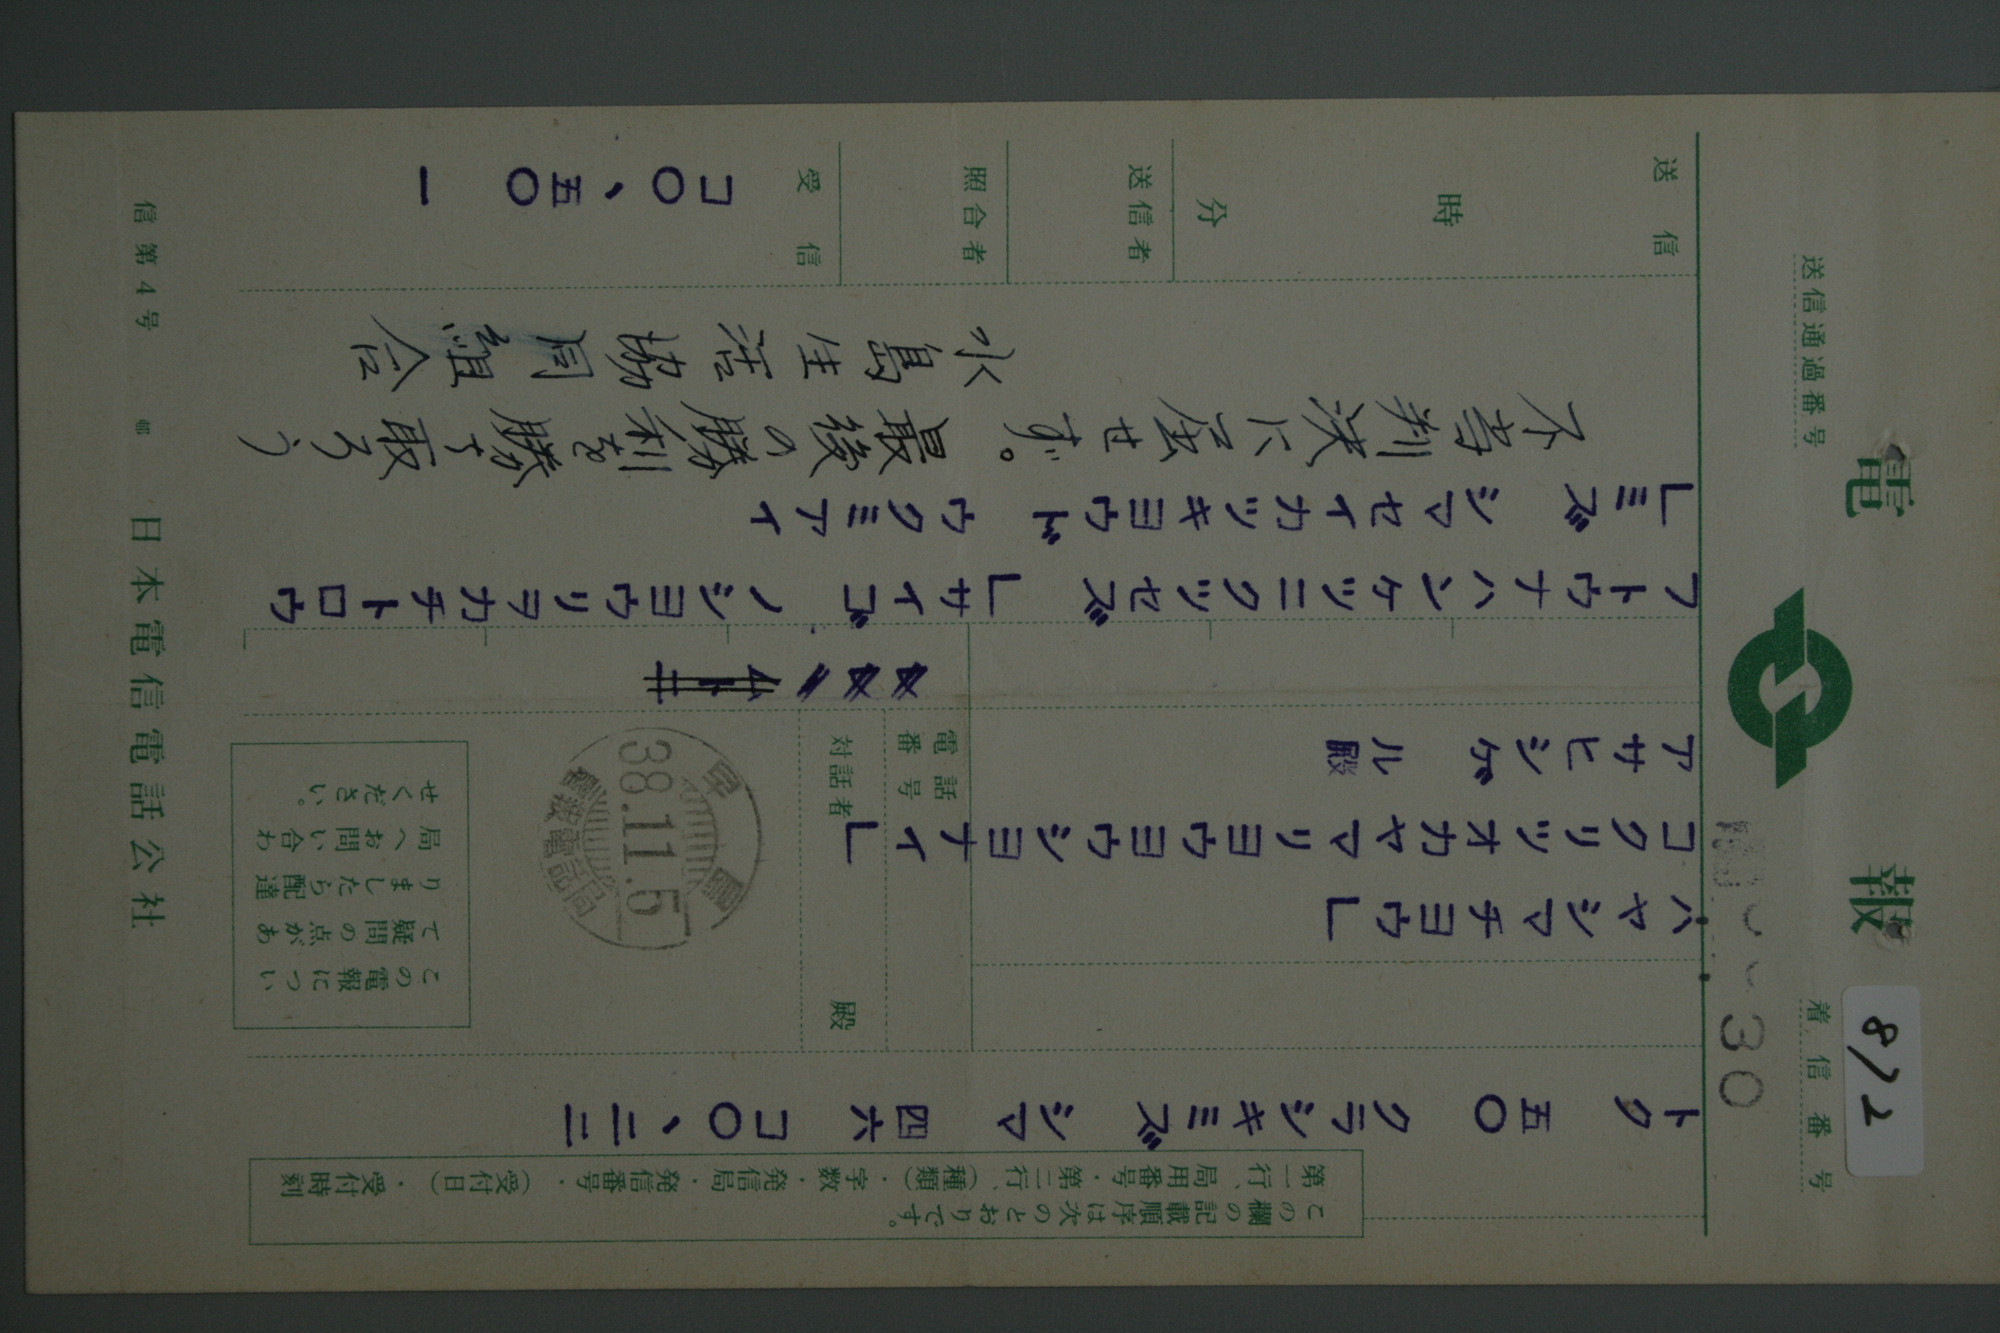 電報
送信通過番号
着信番号
8/2
30
この欄の記載順序は次のとおりです。
第一行、局用番号・第二行、(種類)・字数・発信局・発信番号・(受付日)・受付時刻
トク 五〇 クラシキミズシマ 四六 コ〇、二二
ハヤシマチヨウ」
コクリツオカヤマリヨウヨウシヨナイ」
アサヒシゲル殿
電話番号
対話者 殿
38.11.5
この電報につい
て疑問の点があ
りましたら配達
局へお問い合わ
せください。
フトウナハンケツニクツセズ」サイゴノシヨウリヲカチトロウ
」ミズシマセイカツキヨウドウクミアイ
不当判決に屈せず。最後の勝利を勝ち取ろう
水島生活協同組合
送信 時 分
送信者
照合者
受信 コ〇、五〇 一
信第4号 日本電信電話公社